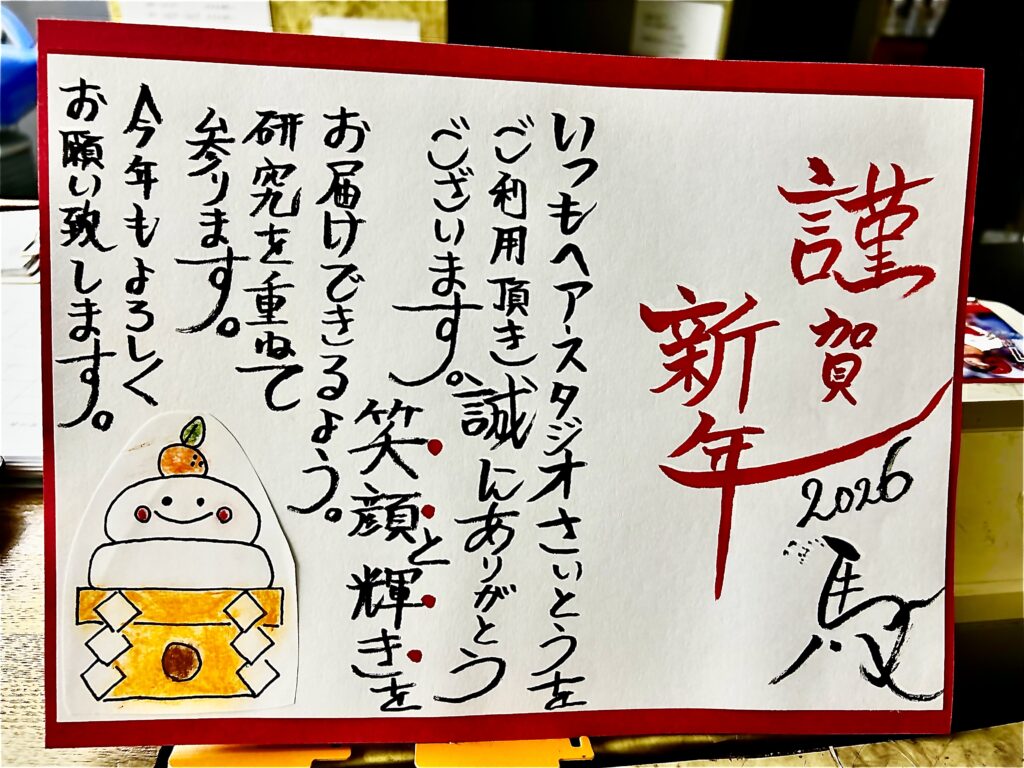 謹賀
新年
2026
馬
いつもヘアースタジオさいとうを
ご利用頂き、誠にありがとう
ございます。笑顔と輝きを
お届けできるよう。
研究を重ねて
参ります。
今年もよろしく
お願い致します。